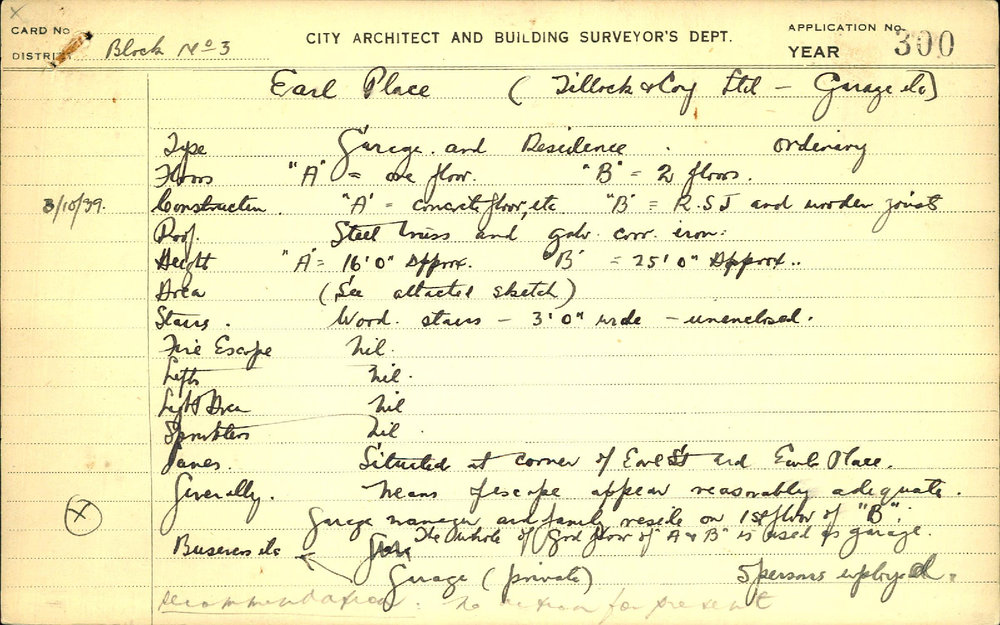 CARD No
CITY ARCHITECT AND BUILDING SURVEYOR'S DEPT.
APPLICATION No. 300
DISTRICT Block No 3
YEAR
Earl Place (Tillock & Coy Ltd - Garage
Type Garage and Residence. Ordinary
Floors "A" = one floor. "B" = 2 floors.
3/10/39. Construction. "A" = concrete floor, etc "B" = R.S.J and wooden joists
Roof. Steel truss and galv. corr. iron.
Height "A" = 16'0" Approx. "B" = 25'0" Approx..
Area (See attached sketch)
Stairs. Wood. stairs - 3'0" wide - unenclosed.
Fire Escape Nil.
Lifts Nil.
Light Area Nil
Sprinklers Nil.
Lanes. Situated at corner of Earl St and Earl Place.
Generally. Means of escape appear reasonably adequate.
X Garage manager and family reside on 1st floor of "B".
The whole of Grd floor of "A & B" is used as garage.
Business
Garage (private) 5 persons employed.
recommendation: No action for present